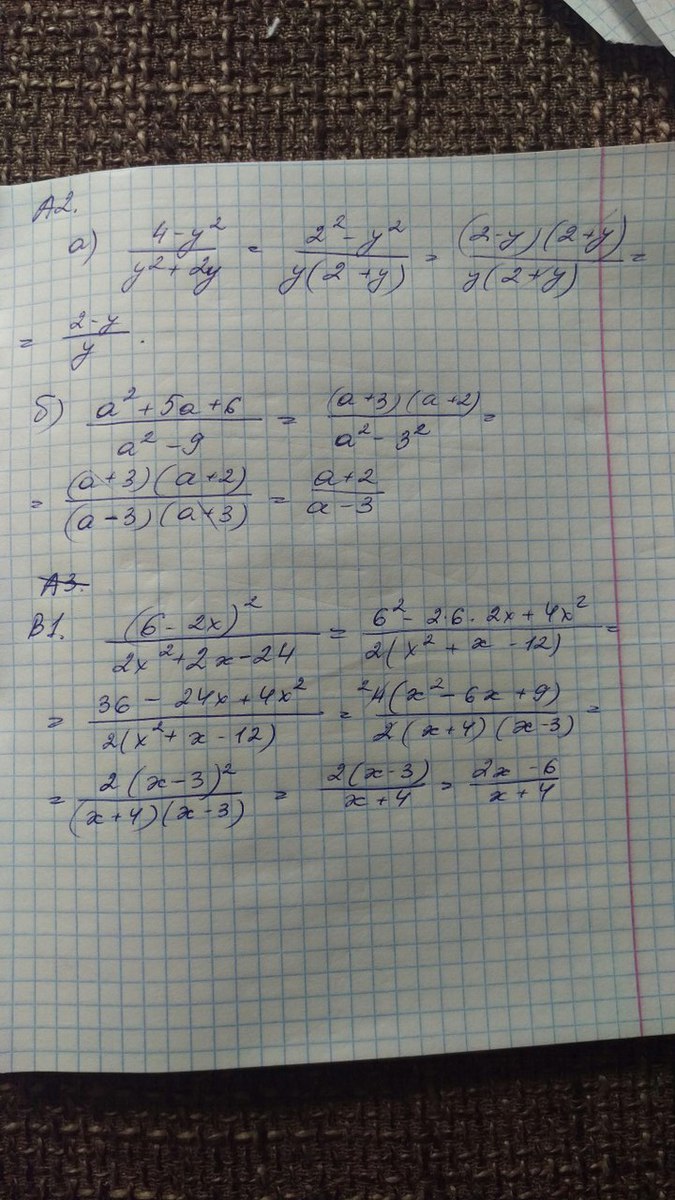 А2.
а) (4-y²)/(y²+2y) = (2²-y²)/(y(2+y)) = ((2-y)(2+y))/(y(2+y)) =
= (2-y)/y .
б) (a²+5a+6)/(a²-9) = ((a+3)(a+2))/(a²-3²) =
= ((a+3)(a+2))/((a-3)(a+3)) = (a+2)/(a-3)
А3.
В1. (6-2x)²/(2x²+2x-24) = (6²-2·6·2x+4x²)/(2(x²+x-12)) =
= (36-24x+4x²)/(2(x²+x-12)) = ²4(x²-6x+9)/(2(x+4)(x-3)) =
= (2(x-3)²)/((x+4)(x-3)) = (2(x-3))/(x+4) = (2x-6)/(x+4)